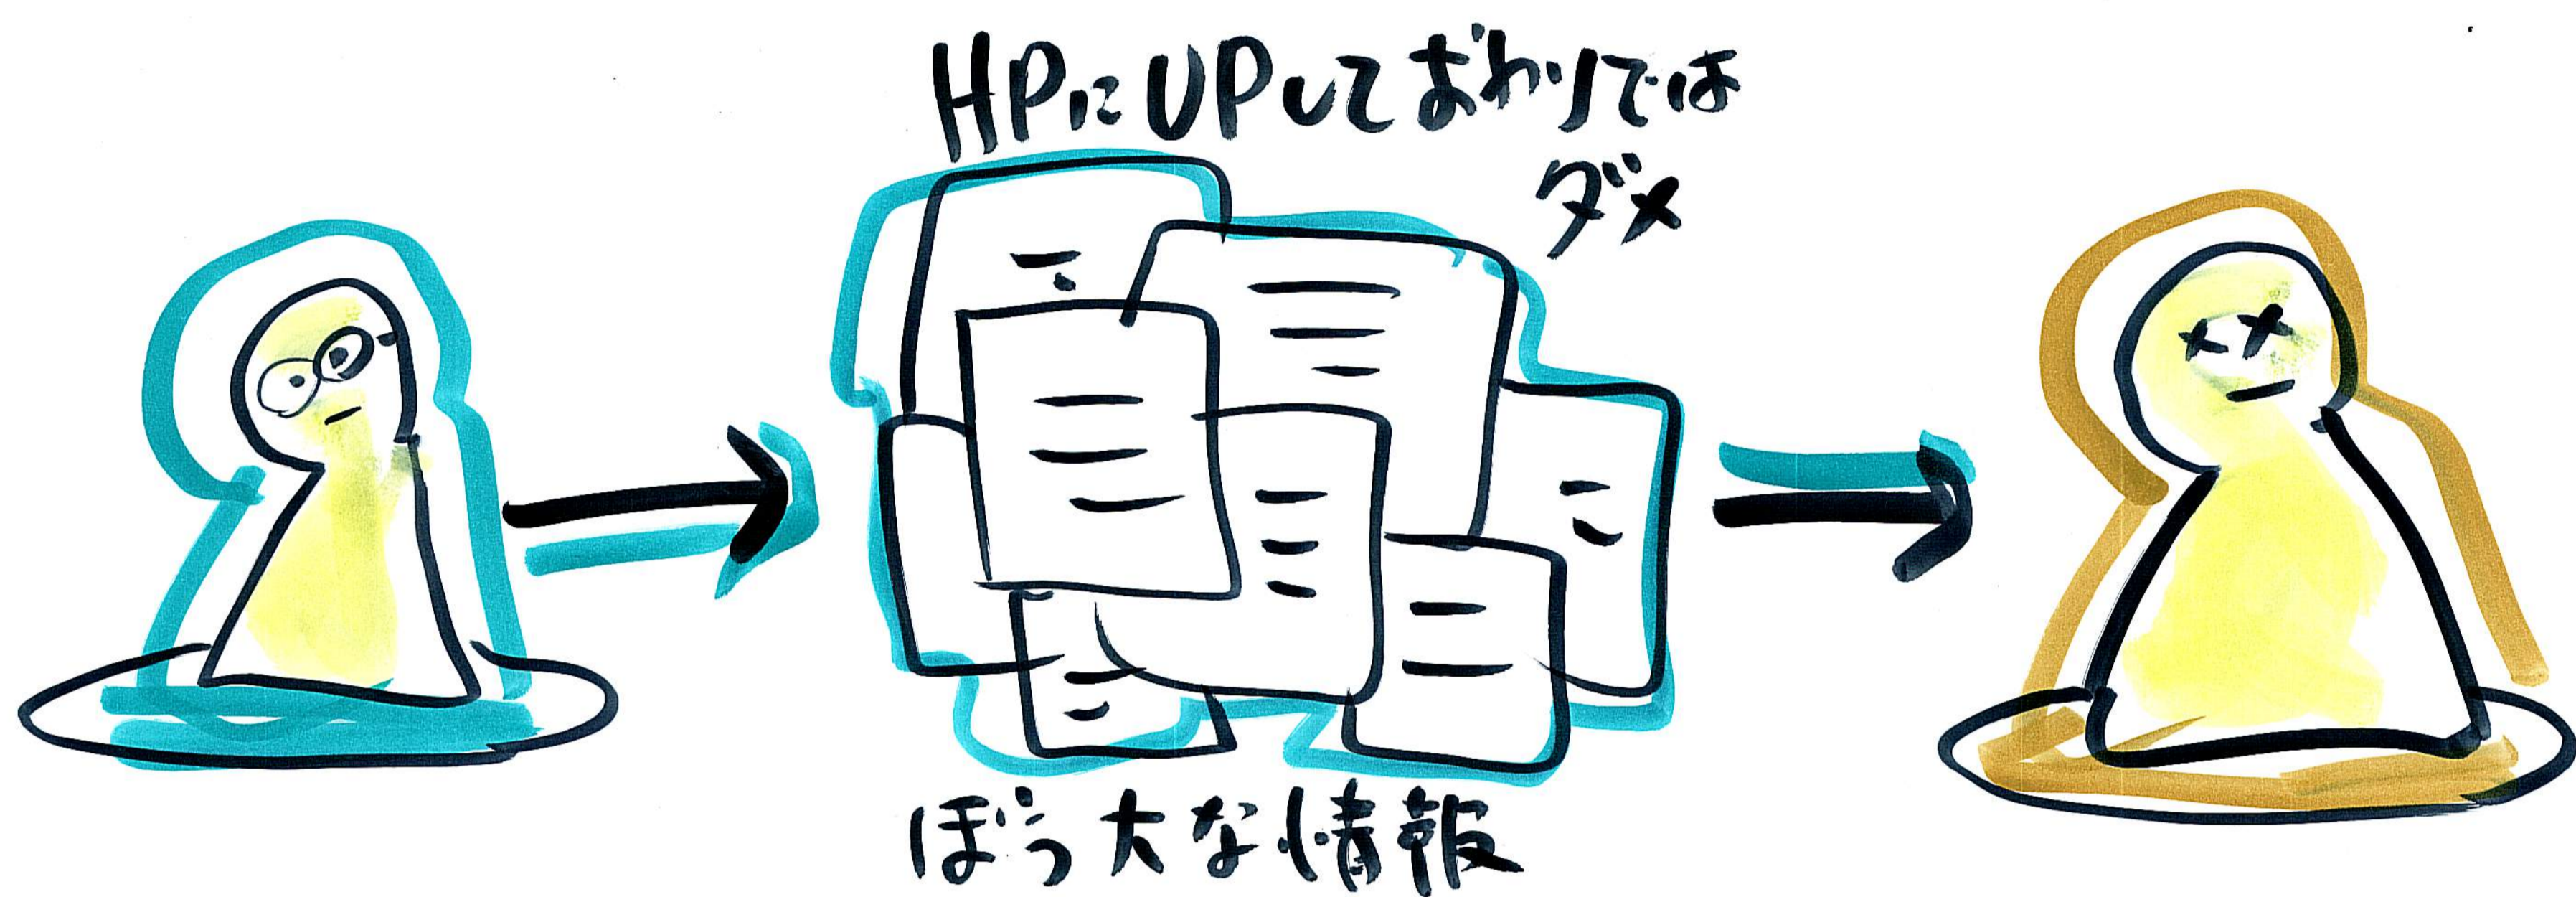 HPにUPしておわりでは
ダメ
ぼう大な情報